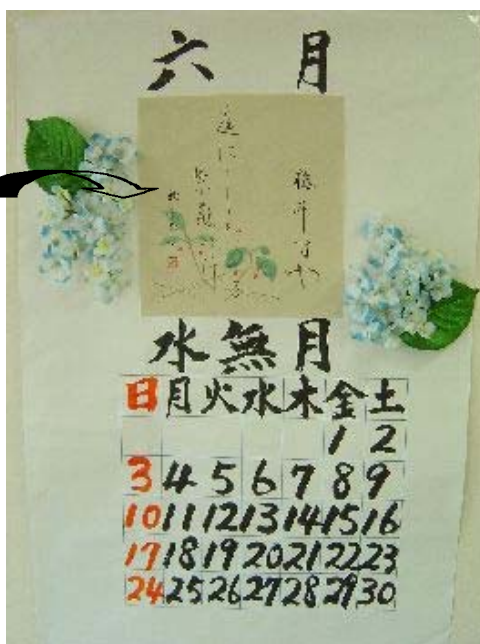 六 月
水無月
日 月 火 水 木 金 土
1 2
3 4 5 6 7 8 9
10 11 12 13 14 15 16
17 18 19 20 21 22 23
24 25 26 27 28 29 30